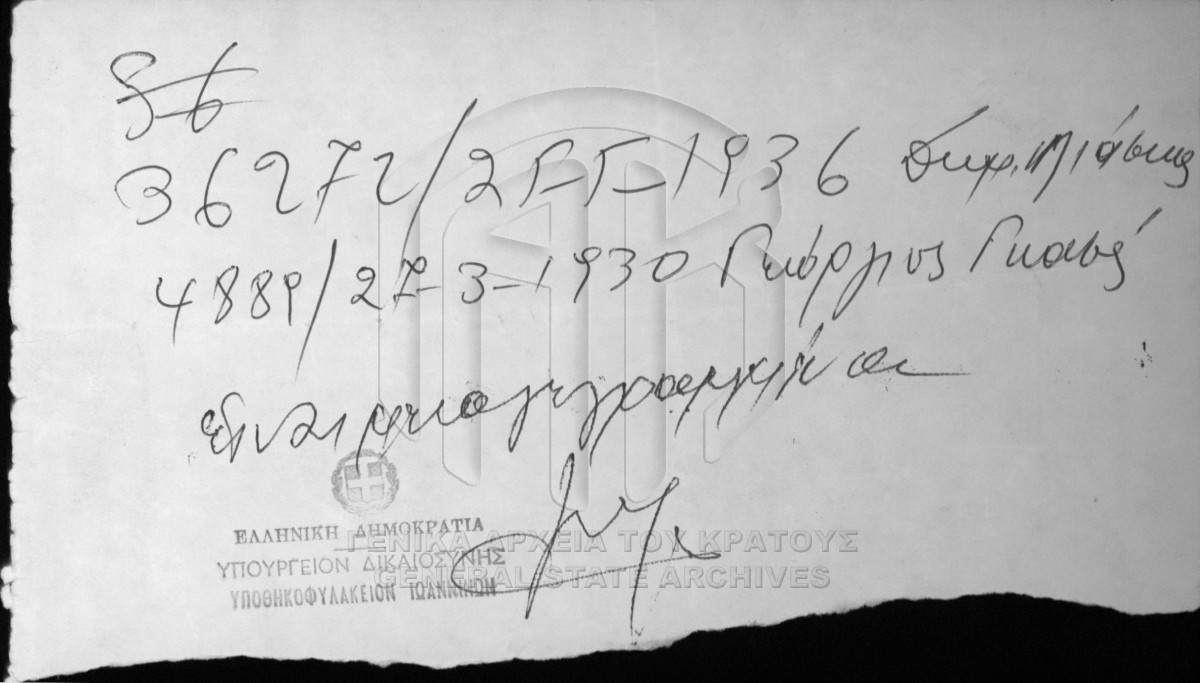 36272/25-5-1936
4889/27-3-1930 Γεώργιος Γκατσ
είναι μεταγεγραμμένα
ΕΛΛΗΝΙΚΗ ΔΗΜΟΚΡΑΤΙΑ
ΥΠΟΥΡΓΕΙΟΝ ΔΙΚΑΙΟΣΥΝΗΣ
ΥΠΟΘΗΚΟΦΥΛΑΚΕΙΟΝ ΙΩΑΝΝΙΝΩΝ
ΓΕΝΙΚΑ ΑΡΧΕΙΑ ΤΟΥ ΚΡΑΤΟΥΣ
GENERAL STATE ARCHIVES